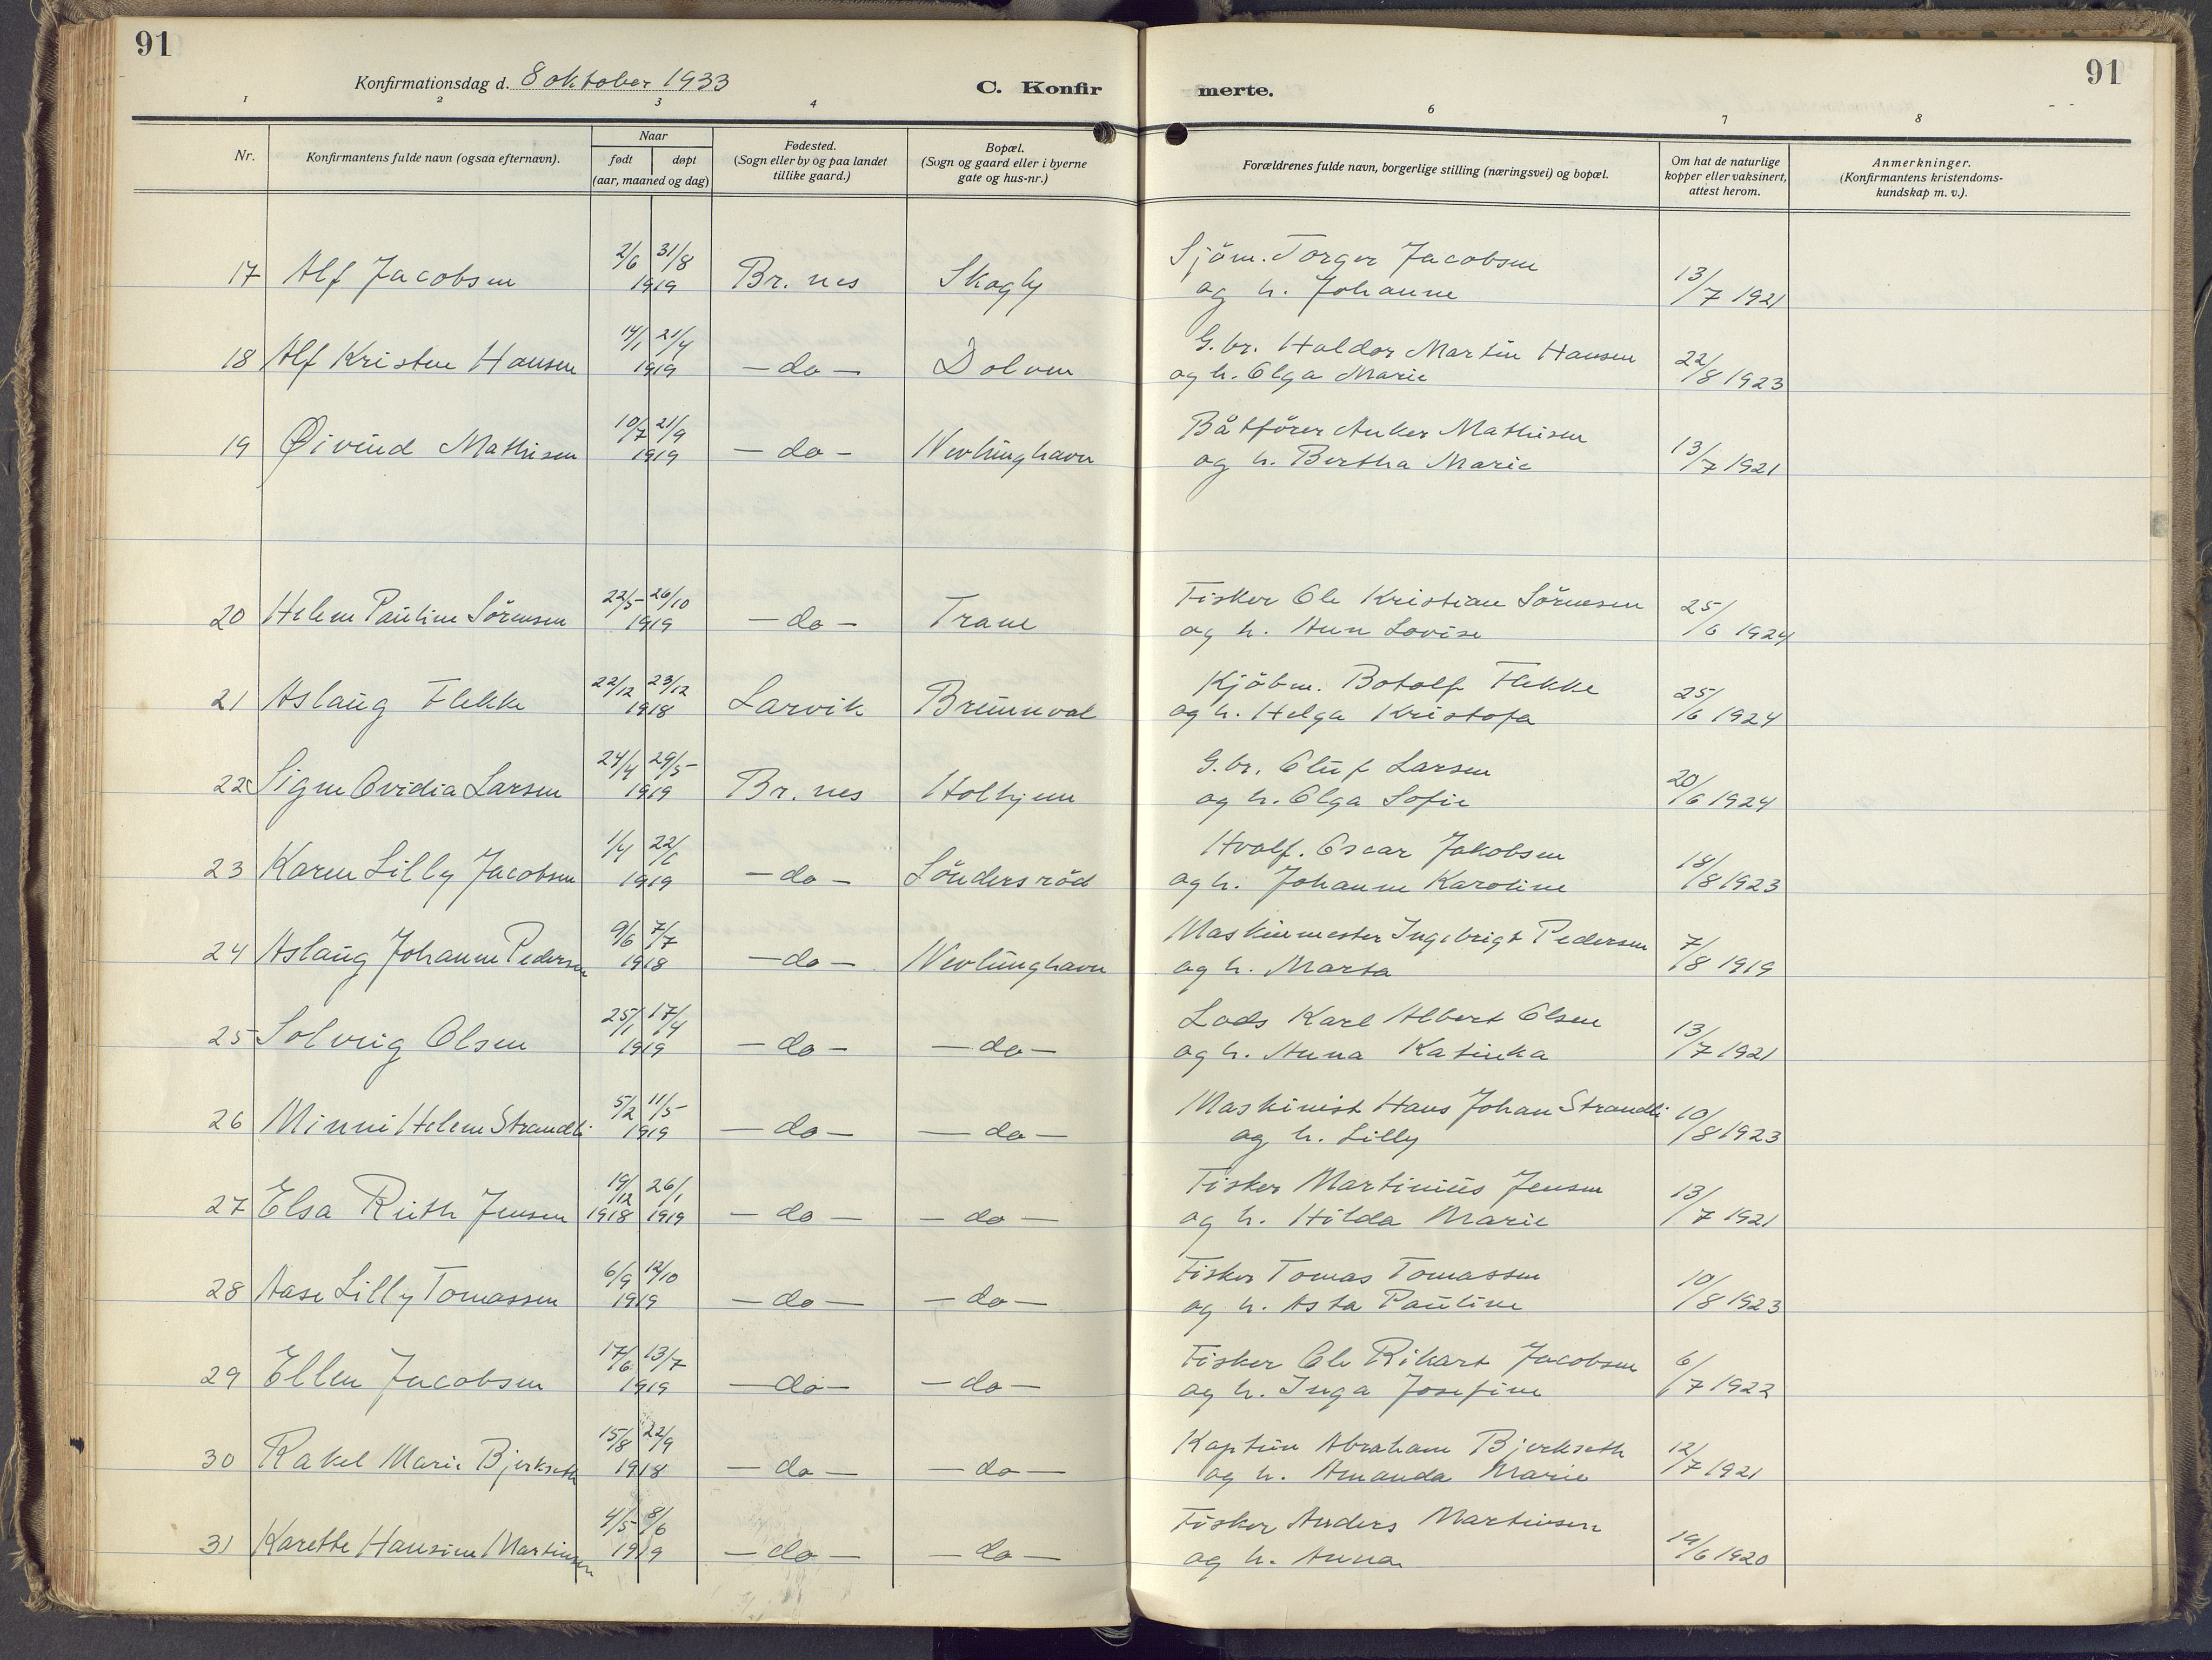 91
91
Konfirmationsdag d. 8 oktober 1933
C. Konfir merte.
1 2 3 4 6 7 8
Nr.
Konfirmantens fulde navn (ogsaa efternavn).
Naar
født døpt
(aar, maaned og dag)
Fødested.
(Sogn eller by og paa landet
tillike gaard.)
Bopæl.
(Sogn og gaard eller i byerne
gate og hus-nr.)
Forældrenes fulde navn, borgerlige stilling (næringsvei) og bopæl.
Om hat de naturlige
kopper eller vaksinert,
attest herom.
Anmerkninger.
(Konfirmantens kristendoms-
kundskap m. v.).
17 Alf Jacobsen 2/6 31/8 1919 Br. nes Skogly Sjöm. Torger Jacobsen 13/7 1921
og h. Johanne
18 Alf Kristen Hansen 14/1 21/4 1919 — do — Dolven G.br. Haldor Martin Hansen 22/8 1923
og h. Olga Marie
19 Øivind Mathisen 10/7 21/9 1919 — do — Nevlunghavn Båtfører Anker Mathisen 13/7 1921
og h. Bertha Marie
20 Helene Pauline Sörensen 22/5 26/10 1919 — do — Trane Fisker Ole Kristian Sörensen 25/6 1924
og h. Ann Lovise
21 Aslaug Flekke 22/12 23/12 1918 Larvik Brunnval Kjöbm. Botolf Flekke 25/6 1924
og h. Helga Kristofa
22 Signe Ovidia Larsen 24/4 29/5 1919 Br. nes Holhjem G.br. Oluf Larsen 20/6 1924
og h. Olga Sofie
23 Karen Lilly Jacobsen 1/4 22/6 1919 — do — Söndersröd Hvalf. Oscar Jakobsen 18/8 1923
og h. Johanne Karoline
24 Aslaug Johanne Pedersen 9/6 7/7 1918 — do — Nevlunghavn Maskinmester Ingebrigt Pedersen 7/8 1919
og h. Marta
25 Solveig Olsen 25/1 17/4 1919 — do — — do — Lods Karl Albert Olsen 13/7 1921
og h. Anna Katinka
26 Minni Helene Strandli 5/2 11/5 1919 — do — — do — Maskinist Hans Johan Strandli 10/8 1923
og h. Lilly
27 Elsa Ruth Jensen 19/12 1918 26/1 1919 — do — — do — Fisker Martinius Jensen 13/7 1921
og h. Hilda Marie
28 Aase Lilly Tomassen 6/9 12/10 1919 — do — — do — Fisker Tomas Tomassen 10/8 1923
og h. Asta Pauline
29 Ellen Jacobsen 17/6 13/7 1919 — do — — do — Fisker Ole Rikart Jacobsen 6/7 1922
og h. Inga Josefine
30 Rakel Marie Bjerkseth 15/8 22/9 1918 — do — — do — Kaptein Abraham Bjerkseth 12/7 1921
og h. Amanda Marie
31 Karethe Hansine Martinsen 4/5 8/6 1919 — do — — do — Fisker Anders Martinsen 19/6 1920
og h. Anna